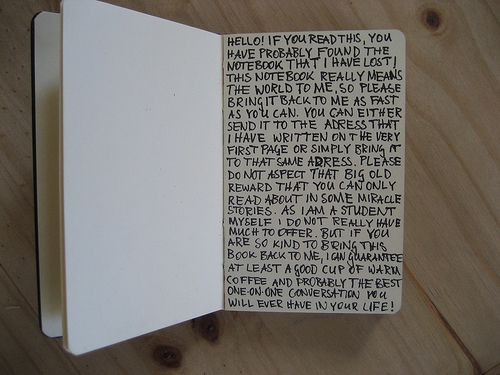 HELLO! IF YOU READ THIS, YOU
HAVE PROBABLY FOUND THE
NOTEBOOK THAT I HAVE LOST!
THIS NOTEBOOK REALLY MEANS
THE WORLD TO ME, SO PLEASE
BRING IT BACK TO ME AS FAST
AS YOU CAN. YOU CAN EITHER
SEND IT TO THE ADRESS THAT
I HAVE WRITTEN ON THE VERY
FIRST PAGE OR SIMPLY BRING IT
TO THAT SAME ADRESS. PLEASE
DO NOT ASPECT THAT BIG OLD
REWARD THAT YOU CAN ONLY
READ ABOUT IN SOME MIRACLE
STORIES. AS I AM A STUDENT
MYSELF I DO NOT REALLY HAVE
MUCH TO OFFER. BUT IF YOU
ARE SO KIND TO BRING THIS
BOOK BACK TO ME, I CAN GUARANTEE
AT LEAST A GOOD CUP OF WARM
COFFEE AND PROBABLY THE BEST
ONE-ON-ONE CONVERSATION YOU
WILL EVER HAVE IN YOUR LIFE!